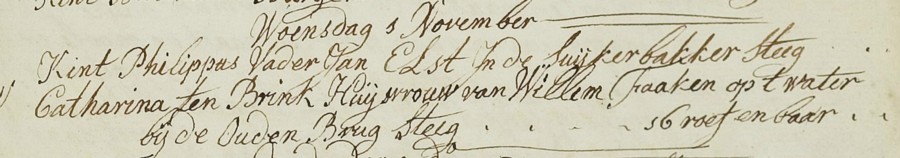 Woensdag 1 November
Kint Philippus Vader Jan Elst In de Suijkerbakker Steeg
Catharina ten Brink Huijsvrouw van Willem Faaken op t water
bij de Ouden Brug Steeg . . . . 16 roef en baar . .